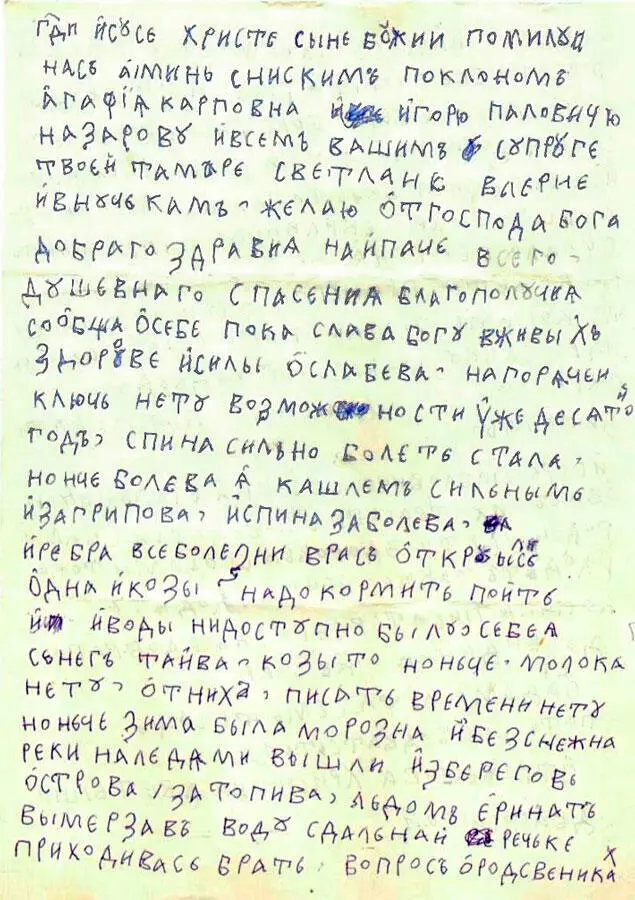 гд҃и ӥсусе христе сыне божии помилуи
насъ аминь снискимъ поклономъ
агафїа карповна ӥгорю паловичю
назарову ӥвсемъ вашимъ супруге
твоей тамаре светлане валерие
ӥвнучекамъ. желаю ѻтгоспода бога
добраго здравиа наипаче всего.
душевнаго спасениа благополучиа
сообща ѻсебе пока слава богу вживыхъ
здорове ӥсилы ѻслабева. нагорачеи
ключь нету возможности уже десатой
годъ, спина сильно болеть стала,
нонче болева а кашлемъ сильныме
ӥзагрипова, ӥспина заболева,
ӥребра все болезни врась ѻткрылись
ѻдна ӥкозы надокормить поить
ӥводы нидоступно было, себеа
сънегъ тайва. козы то ноньче. молока
нету, ѻтниха, писать времени нету
ноньче зима была морозна ӥбезснежна
реки наледами вышли ӥзберегове
ѻстрова, затопива, льдомъ еринатъ
вымерзавъ воду сдальнай речьке
приходивась брать. вопросъ ѻродсвениках